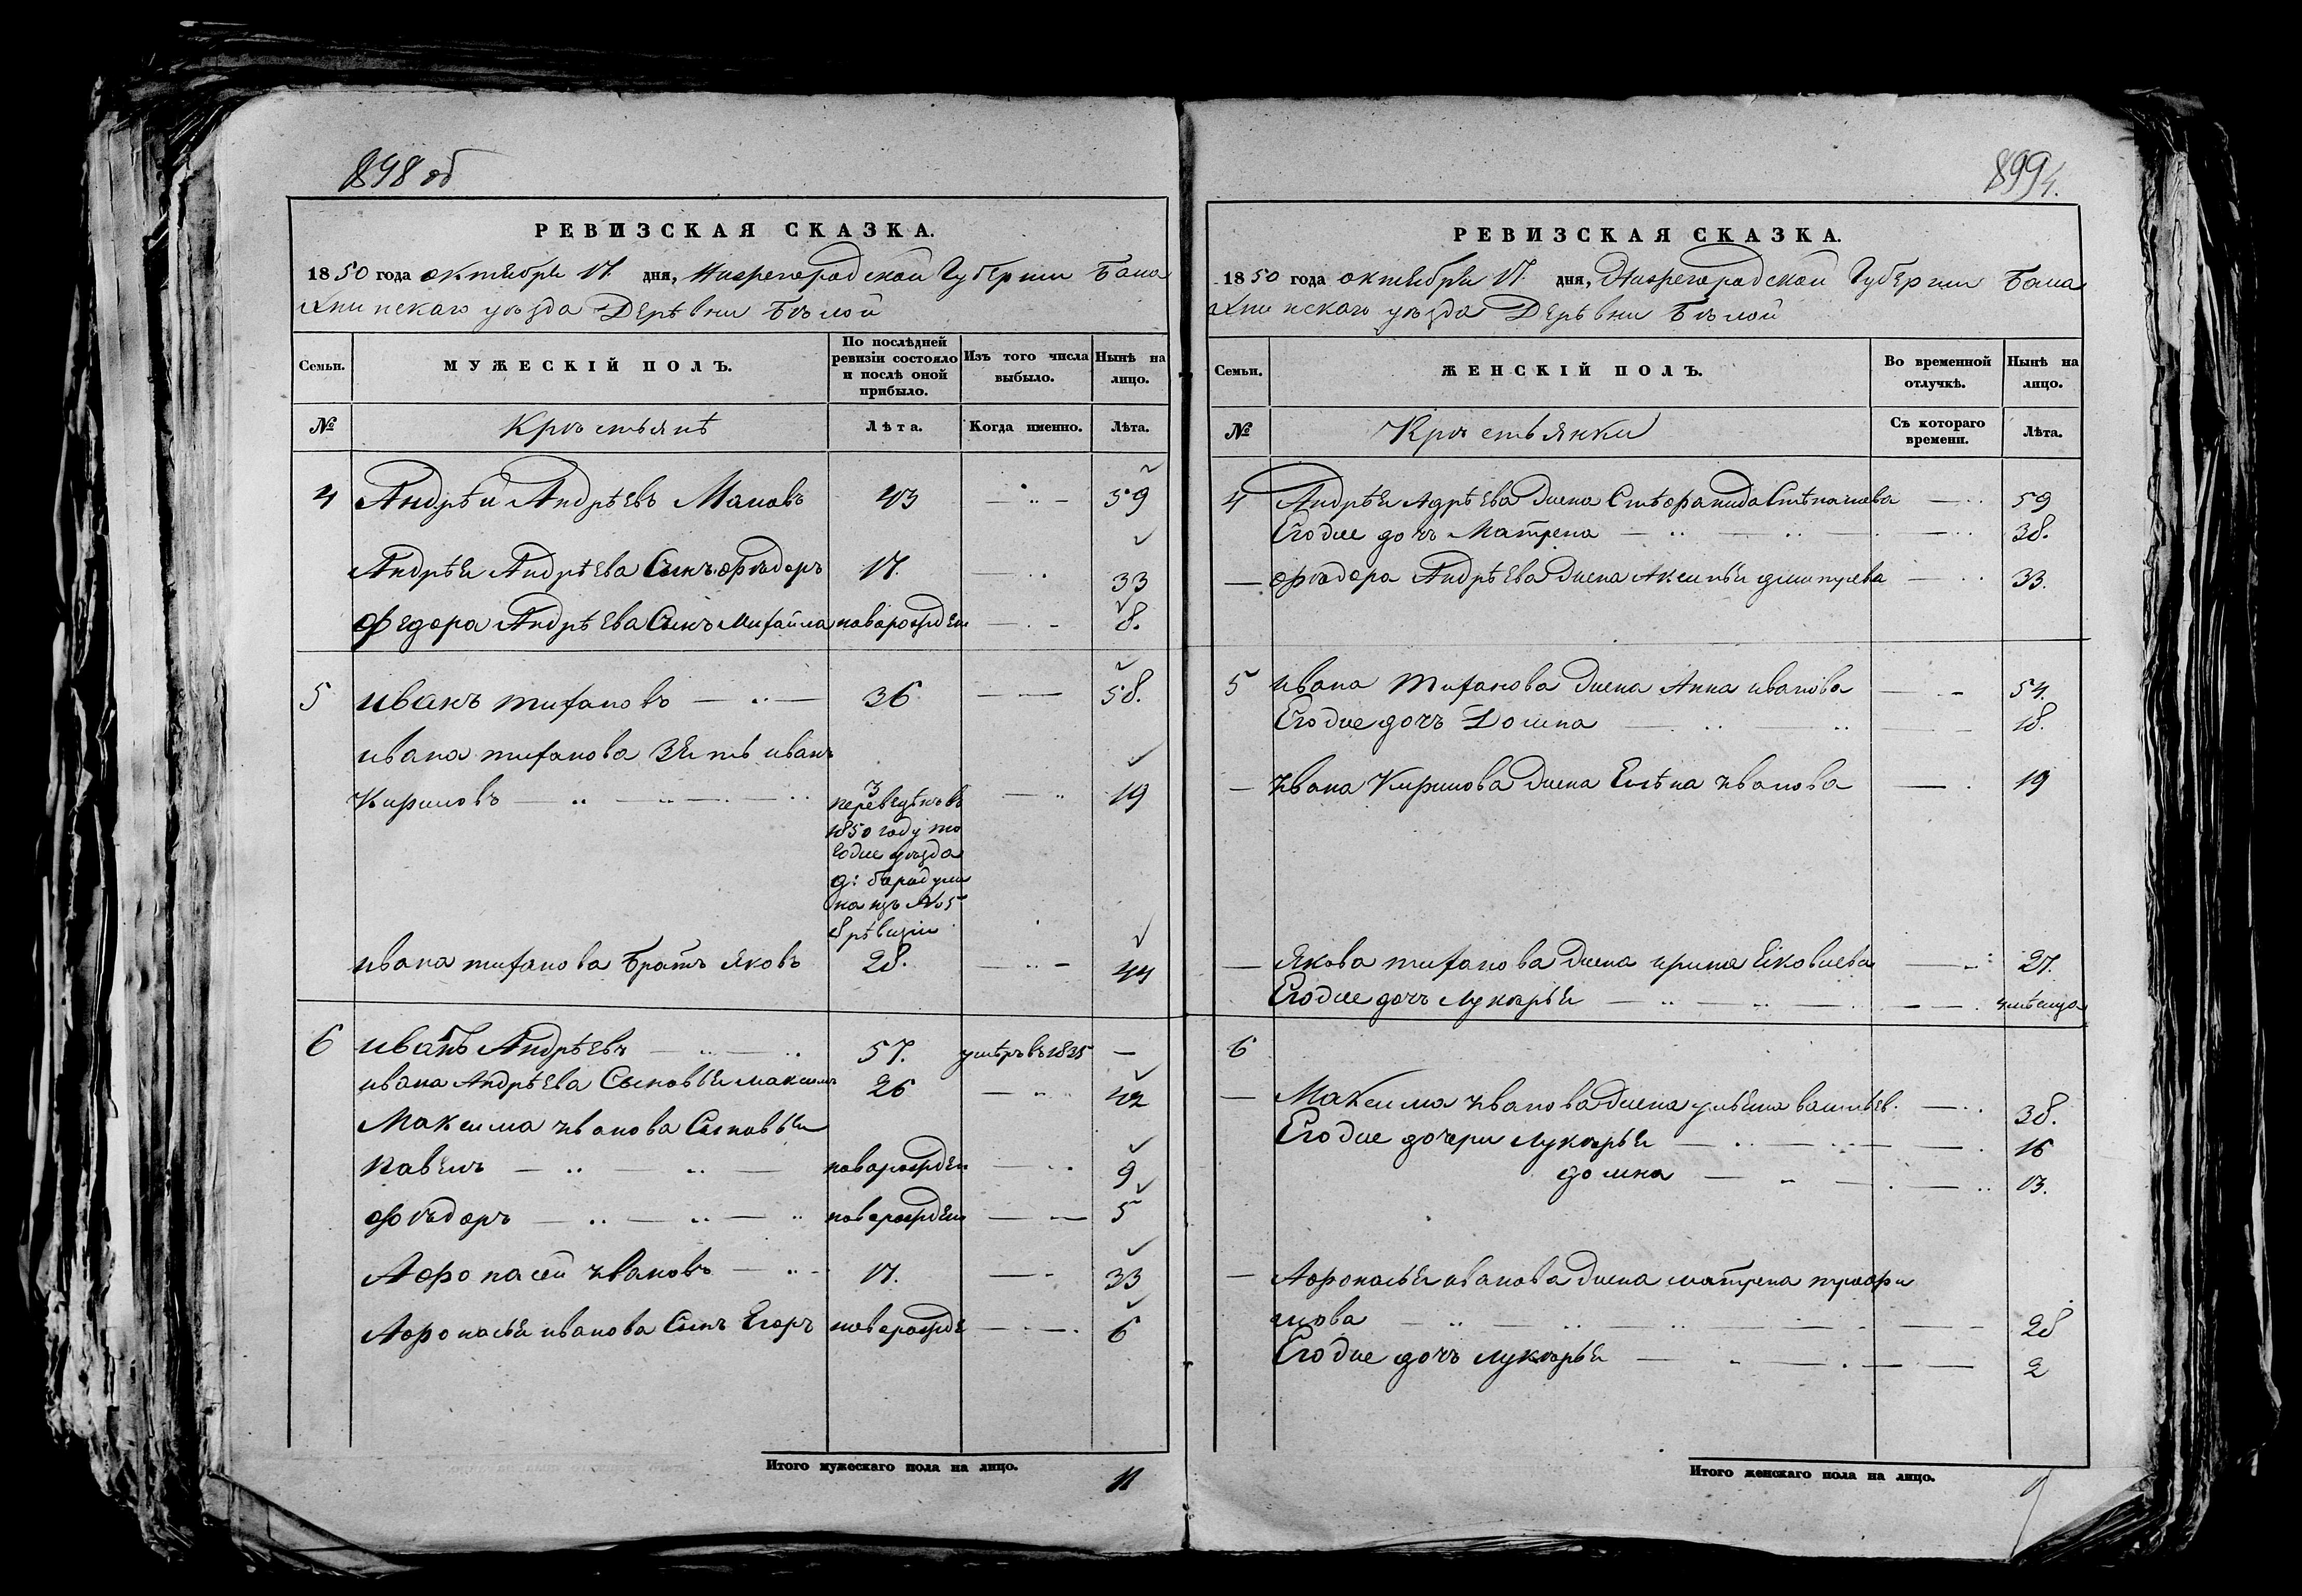 898 об
РЕВИЗСКАЯ СКАЗКА.
1850 года октебря 17 дня, Нижегородской Губернии Бала
хнинскаго уѣзда Дерѣвни Бѣлой
Семьи.
МУЖЕСКІЙ ПОЛЪ.
По послѣдней ревизіи состояло и послѣ оной прибыло.
Изъ того числа выбыло.
Нынѣ на лицо.
№
Кръстьянѣ
Лѣта.
Когда именно.
Лѣта.
4 Андрѣй Андрѣевъ Маловъ 43 — 59
Андрѣя Андрѣева Сынъ Фъдоръ 17. — 33
Федора Андрѣева Сынъ Михайла наворожден — 8.
5 иванъ тихановъ — 36 — 58.
ивана тиханова Зять иванъ
Кириловъ — 3 — 19
перевѣдѣнъ въ
1850 году то
гоже уѣзда
д: бърадули
на изъ №5
8 рѣвизіи
ивана тиханова Братъ Яковъ 28. — 44
6 иванъ Андрѣевъ — 57. умѣръ въ 1835 —
ивана Андрѣева Сыновья максимъ 26 — 42
Максима Иванова Сыновья
Павелъ — наворожден — 9
Фъдоръ — наворожден — 5
Афонасей Ивановъ — 17. — 33
Афонасья иванова Сынъ Егоръ наворожде — 6
Итого мужескаго пола на лицо. 11
899
4.
РЕВИЗСКАЯ СКАЗКА.
1850 года октебря 17 дня, Нижегородской Губернии Бала
хнинскаго уѣзда Дерѣвни Бѣлой
Семьи.
ЖЕНСКІЙ ПОЛЪ.
Во временной отлучкѣ.
Нынѣ на лицо.
№
Кръстьянки
Съ котораго времени.
Лѣта.
4 Андрѣя Адрѣева жена Стѣфанида Стѣпанова — 59
Егоже дочь Матрена — 38.
— Фъдора Андрѣева жена Аксинья — 33.
5 ивана тиханова жена Анна иванова — 54.
Егоже дочь Домна — 18.
— Ивана Кирилова жена Елѣна Иванова — 19
— Якова тиханова жена ирина Яковлева — 27.
Егоже дочь лукърья —
6
— Максима Иванова жена ульяна васильев. — 38.
Егоже дочери лукърья — 16
домна — 13.
— Афонасья иванова жена матрена трофи
мова — 28
Егоже дочь лукърья — 2
Итого женскаго пола на лицо.